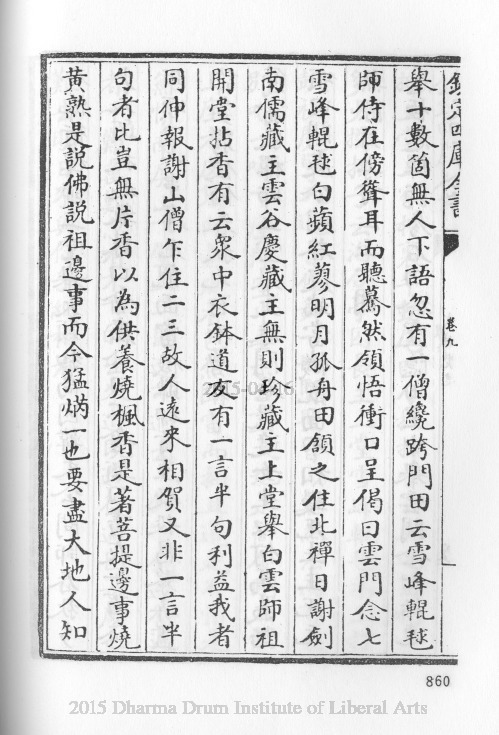 欽定四庫全書
卷九
舉十數箇無人下語忽有一僧纔跨門田云雪峰輥毬
師侍在傍聳耳而聽驀然領悟衝口呈偈曰雲門念七
雪峰輥毬白蘋紅蓼明月孤舟田頷之住北禪日謝劍
南儒藏主雲谷慶藏主無則珍藏主上堂舉白雲師祖
開堂拈香有云衆中衣鉢道友有一言半句利益我者
同伸報謝山僧乍住二三故人遠來相賀又非一言半
句者比豈無片香以為供養燒楓香是著菩提邊事燒
黄熟是說佛說祖邊事而今猛焫一也要盡大地人知
860
2015 Dharma Drum Institute of Liberal Arts